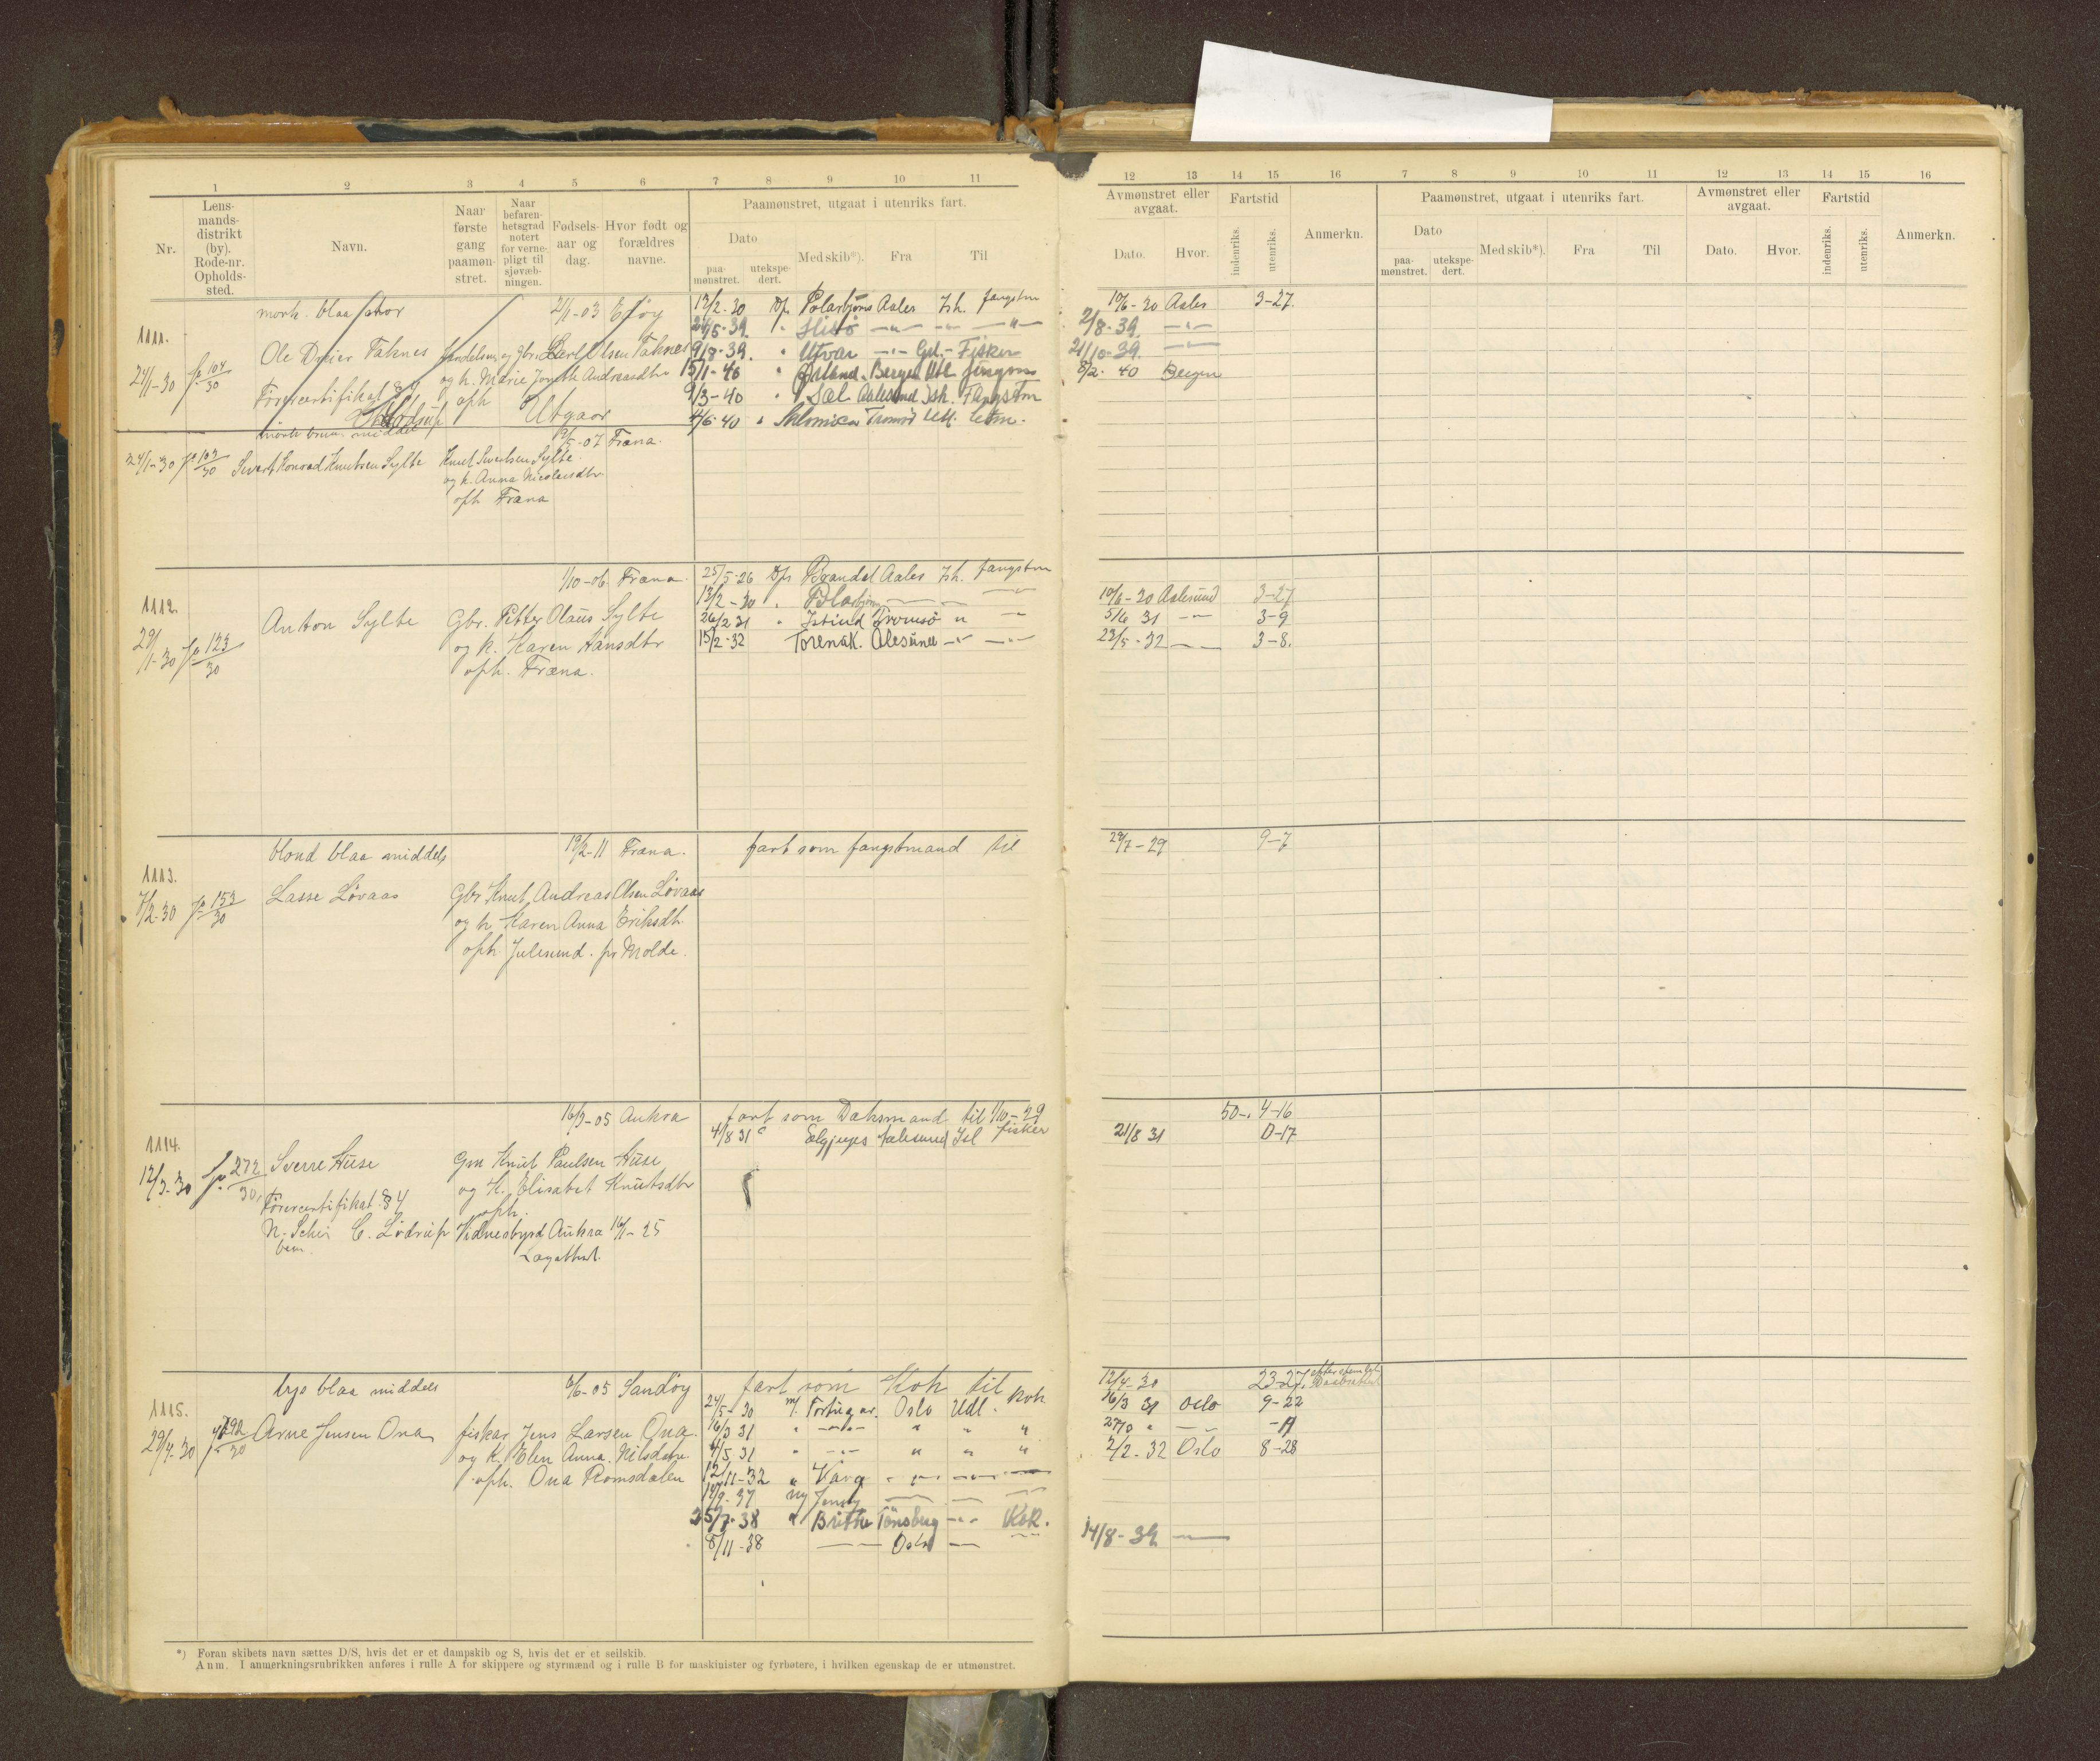 1 2 3 4 5 6 7 8 9 10 11
Nr.
Lens-
mands-
distrikt
(by).
Rode-nr.
Opholds-
sted.
Navn.
Naar
første
gang
paamøn-
stret.
Naar
befaren-
hetsgrad
notert
for verne-
pligt til
sjøvæb-
ningen.
Fødsels-
aar og
dag.
Hvor født og
forældres
navne.
Paamønstret, utgaat i utenriks fart.
Dato
paa-
mønstret.
utekspe-
dert.
Med skib*).
Fra
Til
1111.
24/1-30 104/30
mørk. blaa stor 2/1-03
Ole Dreier Taknes
og gbr. Carl Olsen Taknes
og h. Marie Andreasdtr
Førercertifikat § 4 oph
Utgaar
13/2-30 Polarbjørn Aales Ish. fangstm
24/5-39 " Hisø —"— —"— —"—
9/8-39. " Utvær —"— Grl.- Fisker
15/1-40 " Bergen Utl
9/3-40 " Sæl Aalesund Ish. Fangstm
4/6-40 " Tromsø Utl.
24/1-30 103/30
mørk brun middel 19/5-07 Fræna.
Sivert Konrad Knutsen Sylte
Knut Sivertsen Sylte.
og h. Anna Nicolaisdtr
oph Fræna
1112.
29/1-30 123/30
1/10-06. Fræna.
Anton Sylte
Gbr. Petter Olaus Sylte
og h. Karen Hansdtr
oph. Fræna.
25/5-26 D/s Brandal Aales Ish. fangstm
13/2-30 " Polarbjørn — —
26/2 31 " Isbind Tromsø " —"—
15/2-32 Torenak. Ålesund —"— —"—
1113.
7/2-30 153/30
blond blaa middels 19/2-11 Fræna.
Lasse Løvaas
Gbr Knut Andreas Olsen Løvaas
og h Karen Anna Eriksdtr.
oph. Julesund. pr Molde.
fart som fangstmand til
1114.
12/3-30 272/30.
16/3-05 Aukra
Sverre Huse
Gm Knut Paulsen Huse
og h. Elisabet Knutsdtr
Førercertifikat § 4
oph.
C. Lødrup Vidnesbyrd Aukra 16/1-25
fart som Dæksmand til 1/10-29
4/8 31 Aalesund Isl fisker
1115.
29/4-30 292/30
lys blaa middels 6/6-05 Sandøy
Arne Jensen Ona
fisker Jens Larsen Ona.
og h. Elen Anna Nilsdatr
oph. Ona Romsdalen
fart som Kok til
24/5-30 m/. Oslo Udl. Kok
16/3 31 " —"— " " "
4/5 31 " —"— " " "
12/11-32 " Varg
14/9-37 Jenny — — —
25/7-38 " Britta Tønsberg —"— Kok.
8/11-38 — — Oslo — —
*) Foran skibets navn sættes D/S, hvis det er et dampskib og S, hvis det er et seilskib.
Anm. I anmerkningsrubrikken anføres i rulle A for skippere og styrmænd og i rulle B for maskinister og fyrbøtere, i hvilken egenskap de er utmønstret.
12 13 14 15 16 7 8 9 10 11 12 13 14 15 16
Avmønstret eller
avgaat.
Dato.
Hvor.
Fartstid
indenriks.
utenriks.
Anmerkn.
Paamønstret, utgaat i utenriks fart.
Dato
paa-
mønstret.
utekspe-
dert.
Med skib*).
Fra
Til
Avmønstret eller
avgaat.
Dato.
Hvor.
Fartstid
indenriks.
utenriks.
Anmerkn.
10/6-30 Aales 3-27.
2/8-39. —"—
21/10-39. —"—
8/2-40 Bergen
10/6-30 Aalesund 3-27
5/6 31 —"— 3-9
23/5-32 — — 3-8.
29/7-29 9-7
50-. 4-16
21/8 31 0-17
12/4-30 23-27.
16/3 31 Oslo 9-22
27/10 " —
2/2-32 Oslo 8-28
14/8-39 —"—